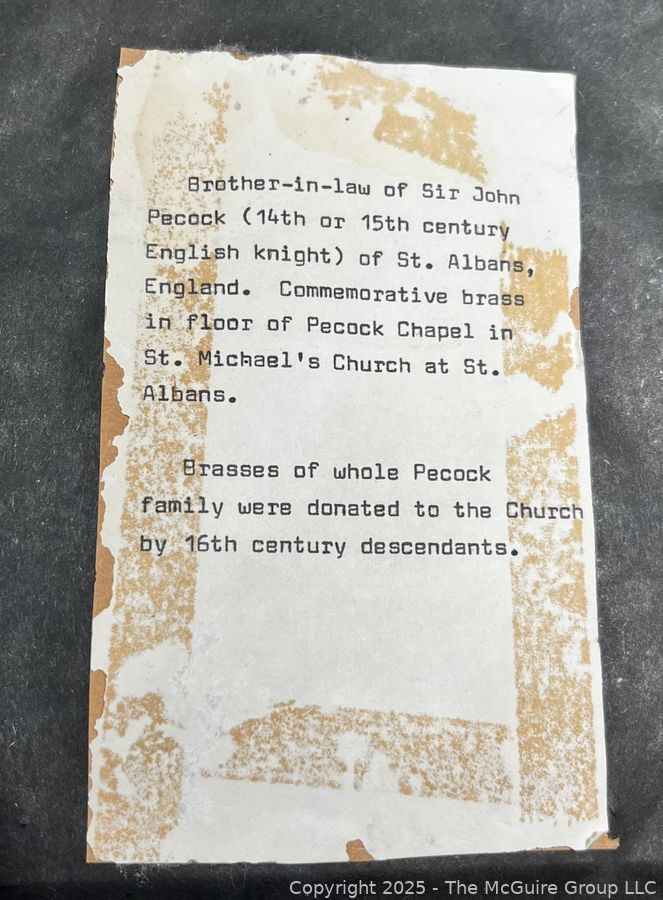 Brother-in-law of Sir John
Pecock (14th or 15th century
English knight) of St. Albans,
England. Commemorative brass
in floor of Pecock Chapel in
St. Michael's Church at St.
Albans.
Brasses of whole Pecock
family were donated to the Church
by 16th century descendants.
Copyright 2025 - The McGuire Group LLC